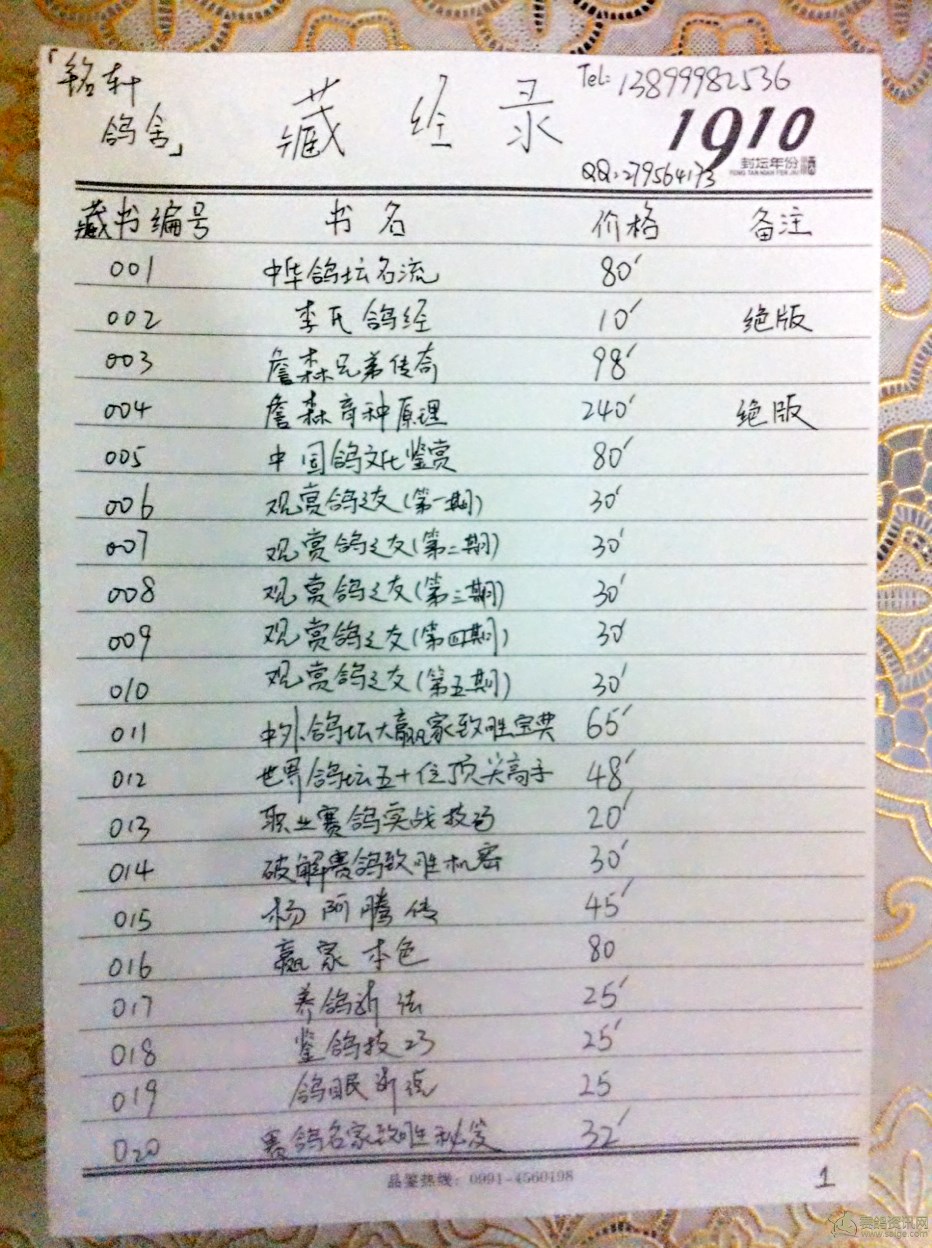 「铭轩
鸽舍」
藏经录
Tel: 13899982536
1910
封坛年份酒
FENG TAN NIAN FEN JIU
QQ:279564173
藏书编号 书名 价格 备注
001 中华鸽坛名流 80'
002 李氏鸽经 10' 绝版
003 詹森兄弟传奇 98'
004 詹森育种原理 240' 绝版
005 中国鸽文化鉴赏 80'
006 观赏鸽之友(第一期) 30'
007 观赏鸽之友(第二期) 30'
008 观赏鸽之友(第三期) 30'
009 观赏鸽之友(第四期) 30'
010 观赏鸽之友(第五期) 30'
011 中外鸽坛大赢家致胜宝典 65'
012 世界鸽坛五十位顶尖高手 48'
013 职业赛鸽实战技巧 20'
014 破解赛鸽致胜机密 30'
015 杨阿腾传 45'
016 赢家本色 80
017 养鸽新法 25'
018 鉴鸽技巧 25'
019 鸽眼新说 25
020 赛鸽名家致胜秘笈 32'
品鉴热线：0991-4560198
1
赛鸽资讯网
www.saige.com